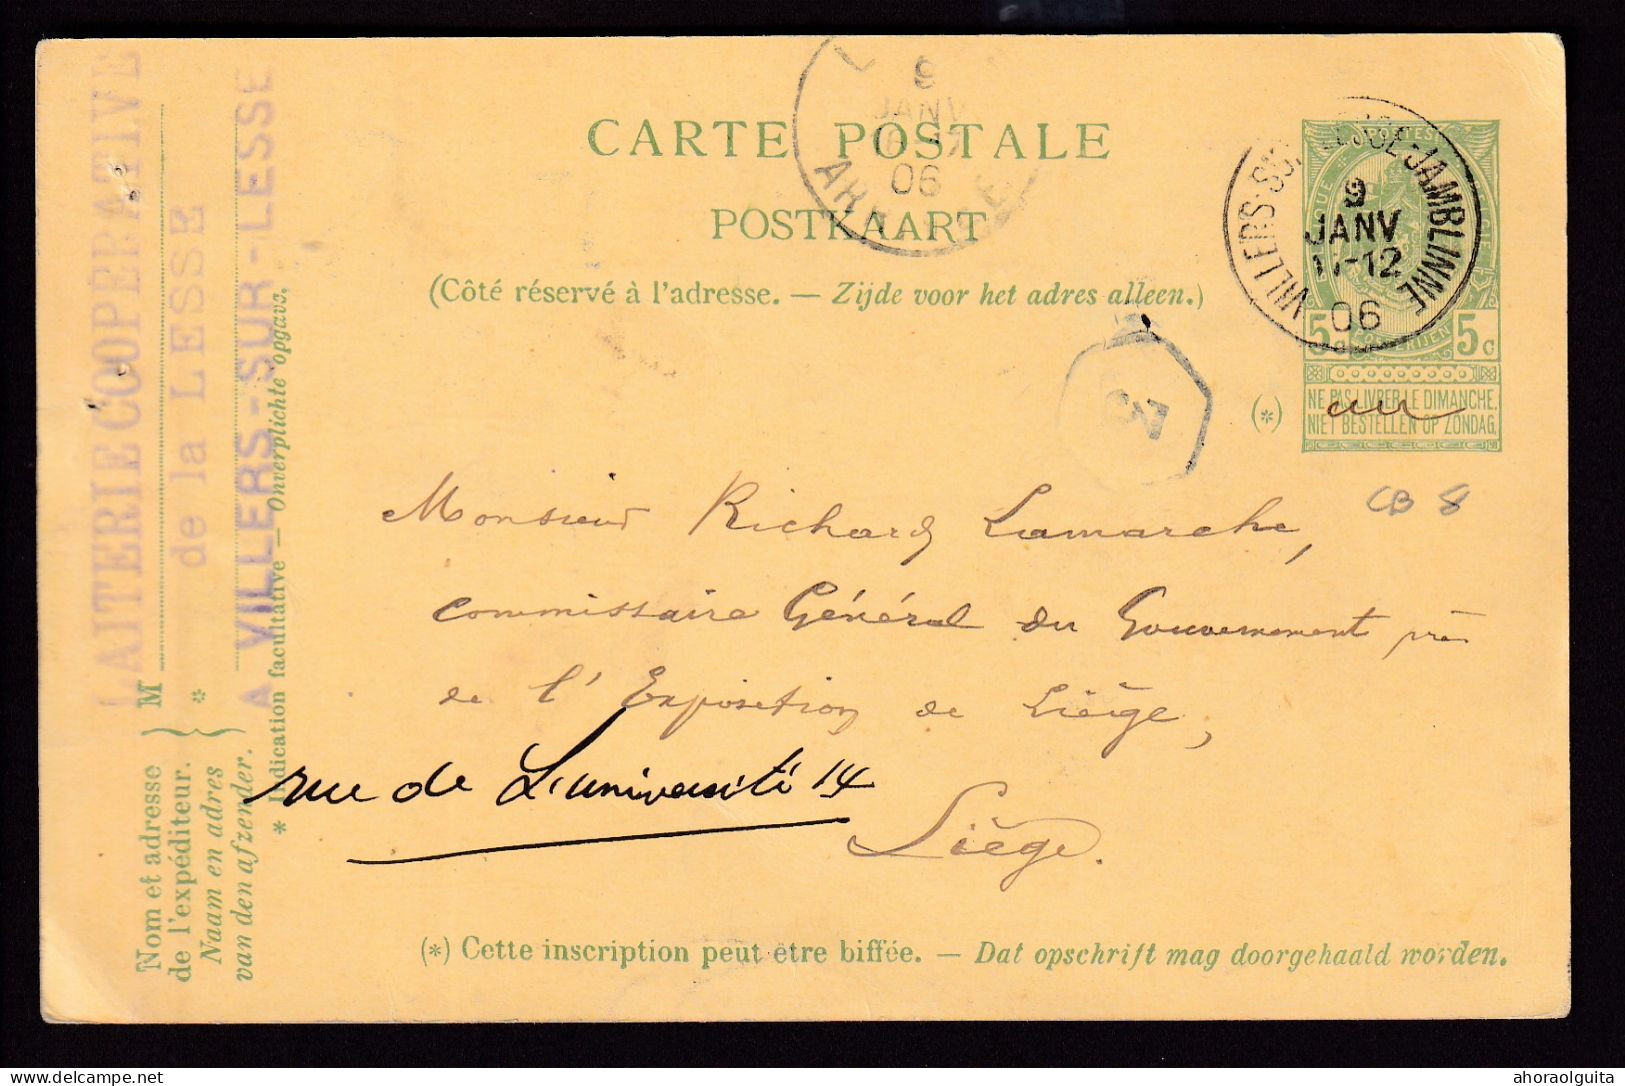 CARTE POSTALE
POSTKAART
(Côté réservé à l'adresse. — Zijde voor het adres alleen.)
9
JANV
06
VILLERS-SUR-LESSE-JAMBLINNE
9
JANV
11-12
06
POSTES
5c 5c
POSTERIJEN
(*)
NE PAS LIVRER LE DIMANCHE.
NIET BESTELLEN OP ZONDAG.
CB 8
Monsieur Richard Lamarche,
Commissaire Général du Gouvernement près
de l'Exposition de Liège,
rue de L'université 14
Liège.
(*) Cette inscription peut être biffée. — Dat opschrift mag doorgehaald worden.
LAITERIE COOPERATIVE
de la LESSE
A VILLERS-SUR-LESSE
M
*
* Indication facultative — Onverplichte opgave.
Nom et adresse
de l'expéditeur.
Naam en adres
van den afzender.
delcampe.net
ahoraolguita